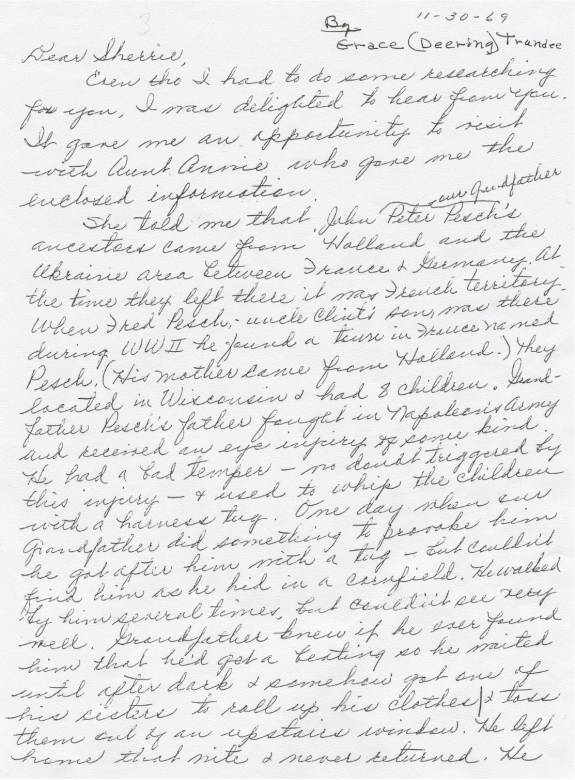 3
11-30-69
By
Grace (Deering) Trundee
Dear Sherrie,
Even tho I had to do some researching
for you, I was delighted to hear from you.
It gave me an opportunity to visit
with Aunt Annie who gave me the
enclosed information.
our grandfather
She told me that John Peter Pesch's
ancestors came from Holland and the
Ukraine area between France & Germany. At
the time they left there it was French territory.
When Fred Pesch, - uncle Clint's son, was there
during WW II he found a town in France named
Pesch. (His mother came from Holland.) They
located in Wisconsin & had 8 children. Grand-
father Pesch's father fought in Napoleon's Army
and received an eye injury of some kind.
He had a bad temper - no doubt triggered by
this injury - & used to whip the children
with a harness tug. One day when our
Grandfather did something to provoke him
he got after him with a tug - but couldn't
find him as he hid in a cornfield. He walked
by him several times, but couldn't see very
well. Grandfather knew if he ever found
him that he'd get a beating so he waited
until after dark & somehow got one of
his sisters to roll up his clothes & toss
them out of an upstairs window. He left
home that nite & never returned. He